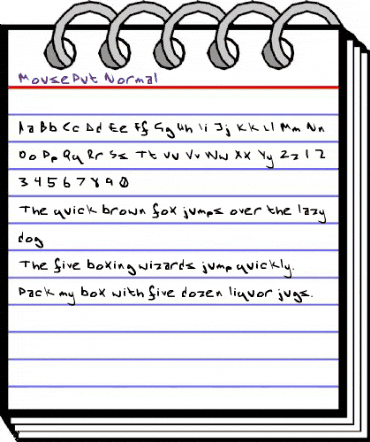 MousePut Normal
Aa Bb Cc Dd Ee Ff Gg Hh Ii Jj Kk Ll Mm Nn
Oo Pp Qq Rr Ss Tt Uu Vv Ww Xx Yy Zz 1 2
3 4 5 6 7 8 9 0
The quick brown fox jumps over the lazy
dog
The five boxing wizards jump quickly.
Pack my box with five dozen liquor jugs.